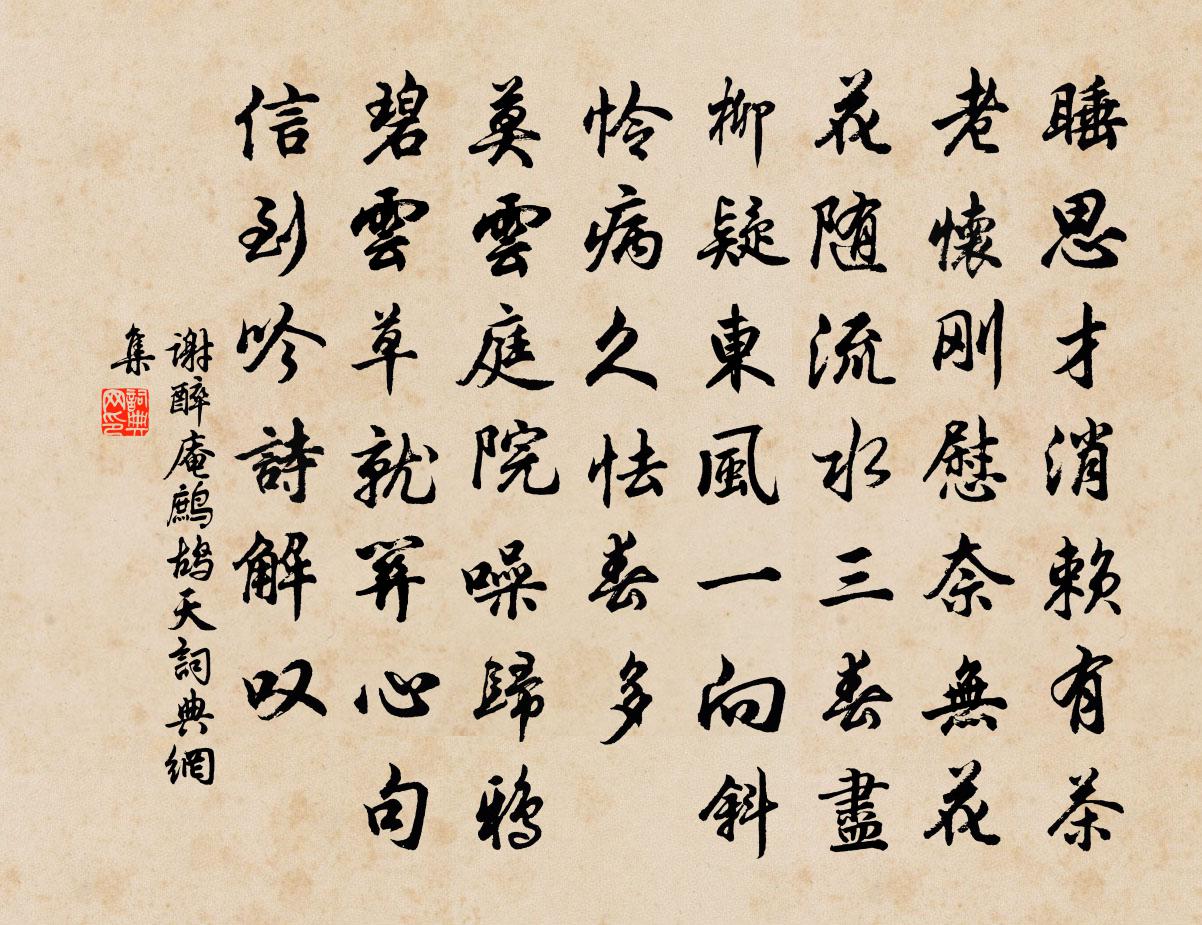 睡思才消賴有茶
老懷刚慰奈無花
花随流水三春盡
柳疑東風一向斜
怜病久怯春多
莫雲庭院噪歸鴉
碧雲草就關心句
信到吟詩解叹
謝醉庵鷓鴣天詞典網
集
詞典网印